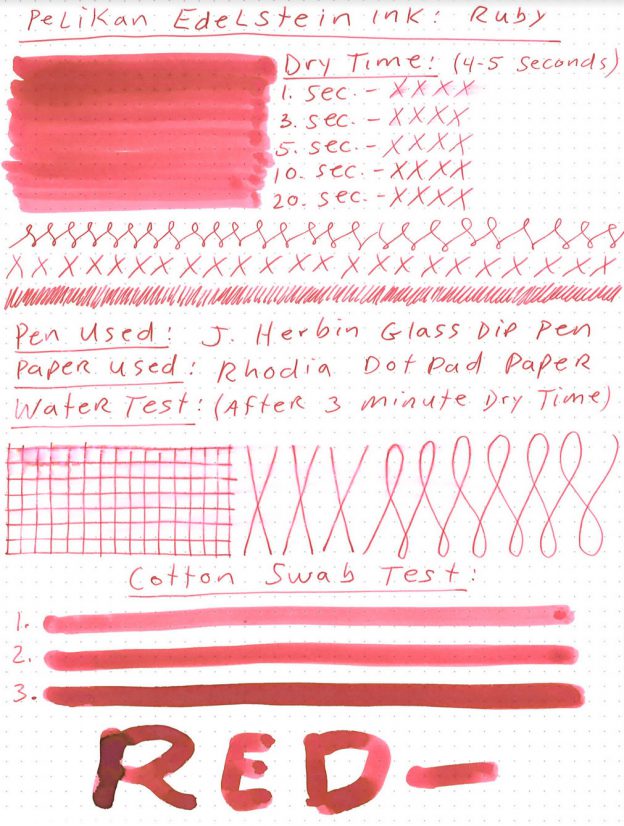 Pelikan Edelstein Ink: Ruby
Dry Time: (4-5 seconds)
1. sec. - XXXX
3. sec. - XXXX
5. sec. - XXXX
10. sec. - XXXX
20. sec. - XXXX
X X X X X X X X X X X X X X X X X X X X X X X X
Pen Used: J. Herbin Glass Dip Pen
Paper Used: Rhodia Dot Pad Paper
Water Test: (After 3 minute Dry Time)
Cotton Swab Test:
1.
2.
3.
RED-